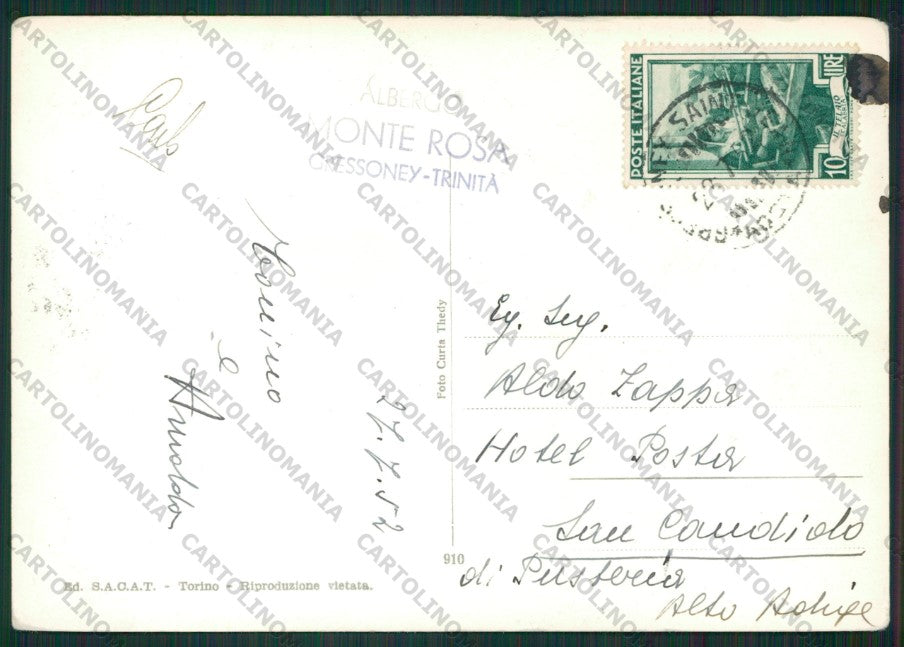 Carlo
ALBERGO
MONTE ROSA
GRESSONEY-TRINITÀ
POSTE ITALIANE
LIRE
10
IL TELAIO
CALABRIA
e
Arnaldo
27.7.52
Foto Curta Thedy
Eg. Sig.
Aldo Zappa
Hotel Posta
San Candido
di Pusteria
Alto Adige
910
Ed. S.A.C.A.T. - Torino - Riproduzione vietata.
CARTOLINOMANIA